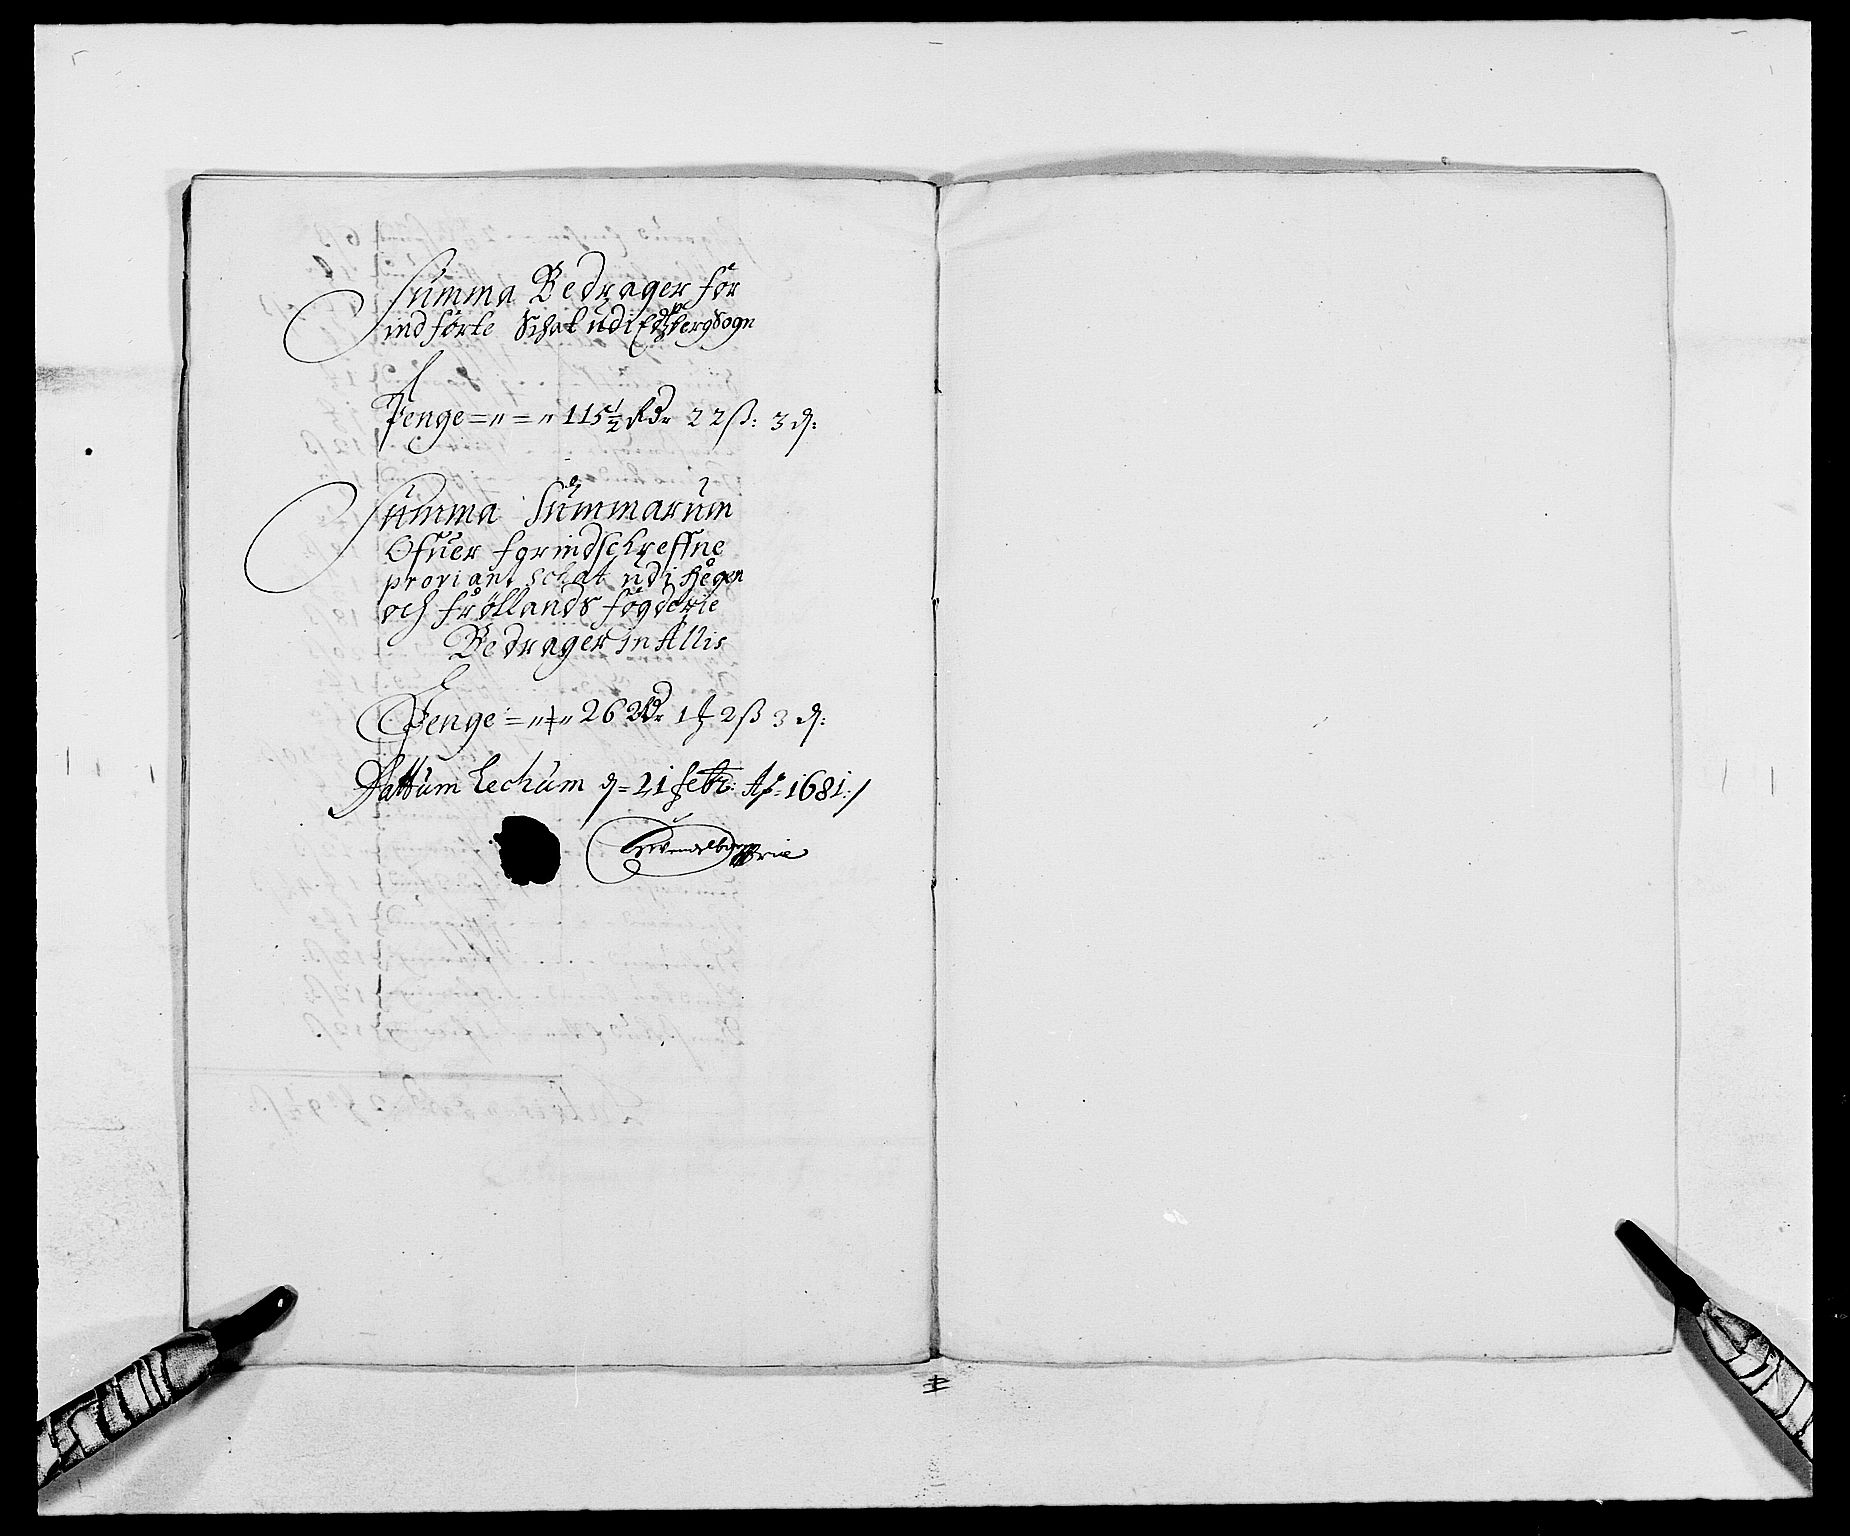 Summa Bedrager for
indförte Schat udi Edsberg Sogn
Penge = " = " 115½ Rdr 22 ß: 3 δ:
Summa Summarum
Ofuer forindschreffne
proviant schat udi Heggen
och Fröllands fögderie
Bedrager in Allis
Penge = " = " 262 Rdr 1 ƶ 2 ß 3 δ:
Dattum Lechum d= 21 febr: Ao: 1681:/